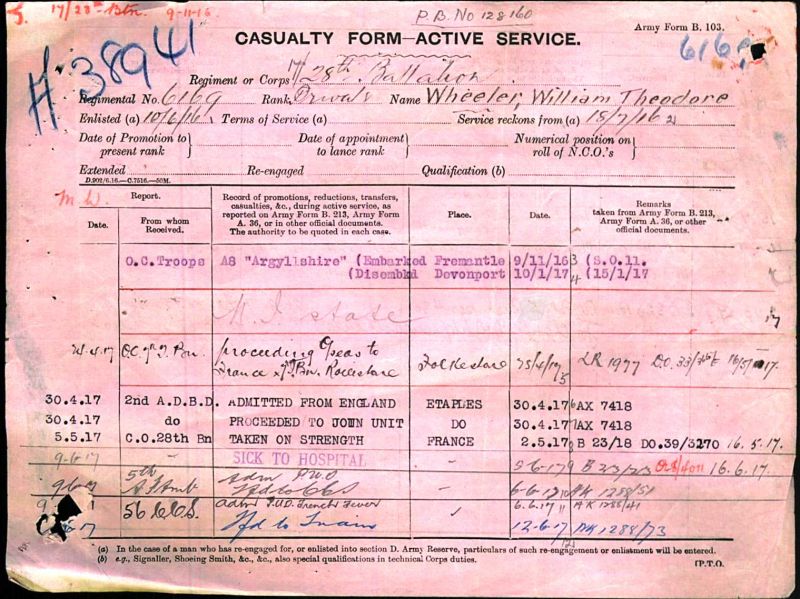 17/28th Btn. 9-11-16
P.B. No 128160
Army Form B. 103.
# 38941
CASUALTY FORM—ACTIVE SERVICE.
Regiment or Corps 17/28th Battalion
Regimental No. 6169 Rank Private Name Wheeler, William Theodore
Enlisted (a) 10/6/16 Terms of Service (a) Service reckons from (a) 15/7/16
Date of Promotion to present rank } Date of appointment to lance rank } Numerical position on roll of N.C.O.'s }
Extended Re-engaged Qualification (b)
D.902/6.16.—C.7516.—50M.
Report.
Date.
From whom Received.
Record of promotions, reductions, transfers, casualties, &c., during active service, as reported on Army Form B. 213, Army Form A. 36, or in other official documents. The authority to be quoted in each case.
Place.
Date.
Remarks
taken from Army Form B. 213, Army Form A. 36, or other official documents.
O.C. Troops A8 "Argyllshire" (Embarked Fremantle 9/11/16 (S.O.11.
(Disembkd Devonport 10/1/17 (15/1/17
4.17 proceeding O'seas to
France Folkestone 25/4/17 LR 1977
30.4.17 2nd A.D.B.D. ADMITTED FROM ENGLAND ETAPLES 30.4.17 AX 7418
30.4.17 do PROCEEDED TO JOIN UNIT DO 30.4.17 AX 7418
5.5.17 C.O.28th Bn TAKEN ON STRENGTH FRANCE 2.5.17 B 23/18 DO.39/3270 16.5.17.
9-6-17 SICK TO HOSPITAL 5-6-17 B 23/23 16.6.17.
9-6-17 5th A F Amb adm P.U.O.
Tfd to CCS 6-6-17 AK 1288/51
56 CCS adm P.U.O. Trench Fever 6.6.17 AK 1288/41
6-17 Tfd to Train 12-6-17 AK 1288/73
(a) In the case of a man who has re-engaged for, or enlisted into section D. Army Reserve, particulars of such re-engagement or enlistment will be entered.
(b) e.g., Signaller, Shoeing Smith, &c., &c., also special qualifications in technical Corps duties.
[P.T.O.